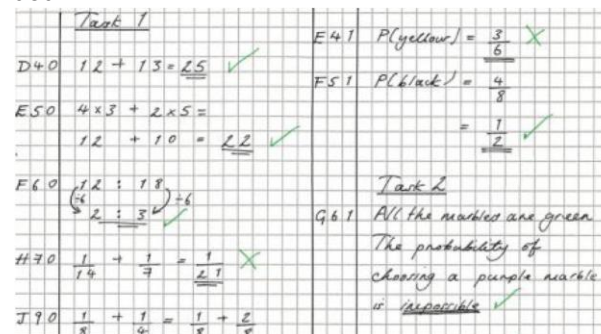 Task 1
D40 12 + 13 = 25 ✓
E50 4 x 3 + 2 x 5 =
12 + 10 = 22 ✓
F60 12 : 18
÷6 ÷6
2 : 3 ✓
H70 1/14 + 1/7 = 1/21 ✗
J90 1/8 + 1/4 = 1/8 + 2/8
E41 P(yellow) = 3/6 ✗
F51 P(black) = 4/8
= 1/2 ✓
Task 2
G61 All the marbles are green
The probability of
choosing a purple marble
is impossible ✓